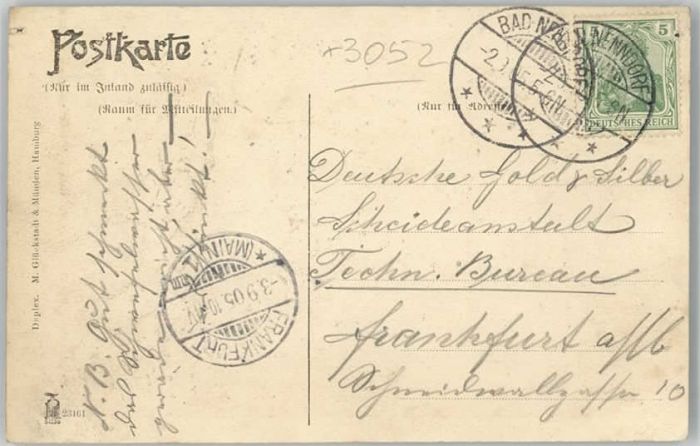 Postkarte
(Nur im Inland zulässig)
(Raum für Mitteilungen.)
+3052
(Nur für Adresse)
BAD NENNDORF
BAD NENNDORF
5
DEUTSCHES REICH
Deutsche Gold & Silber
Scheideanstalt
Techn. Bureau
Frankfurt a/M
Schneidwallgasse 10
N.B. Gut schmeckt
der
FRANKFURT
(MAIN) 1
-3.9.05.10
Duplex. M. Glückstadt & Münden, Hamburg
23161